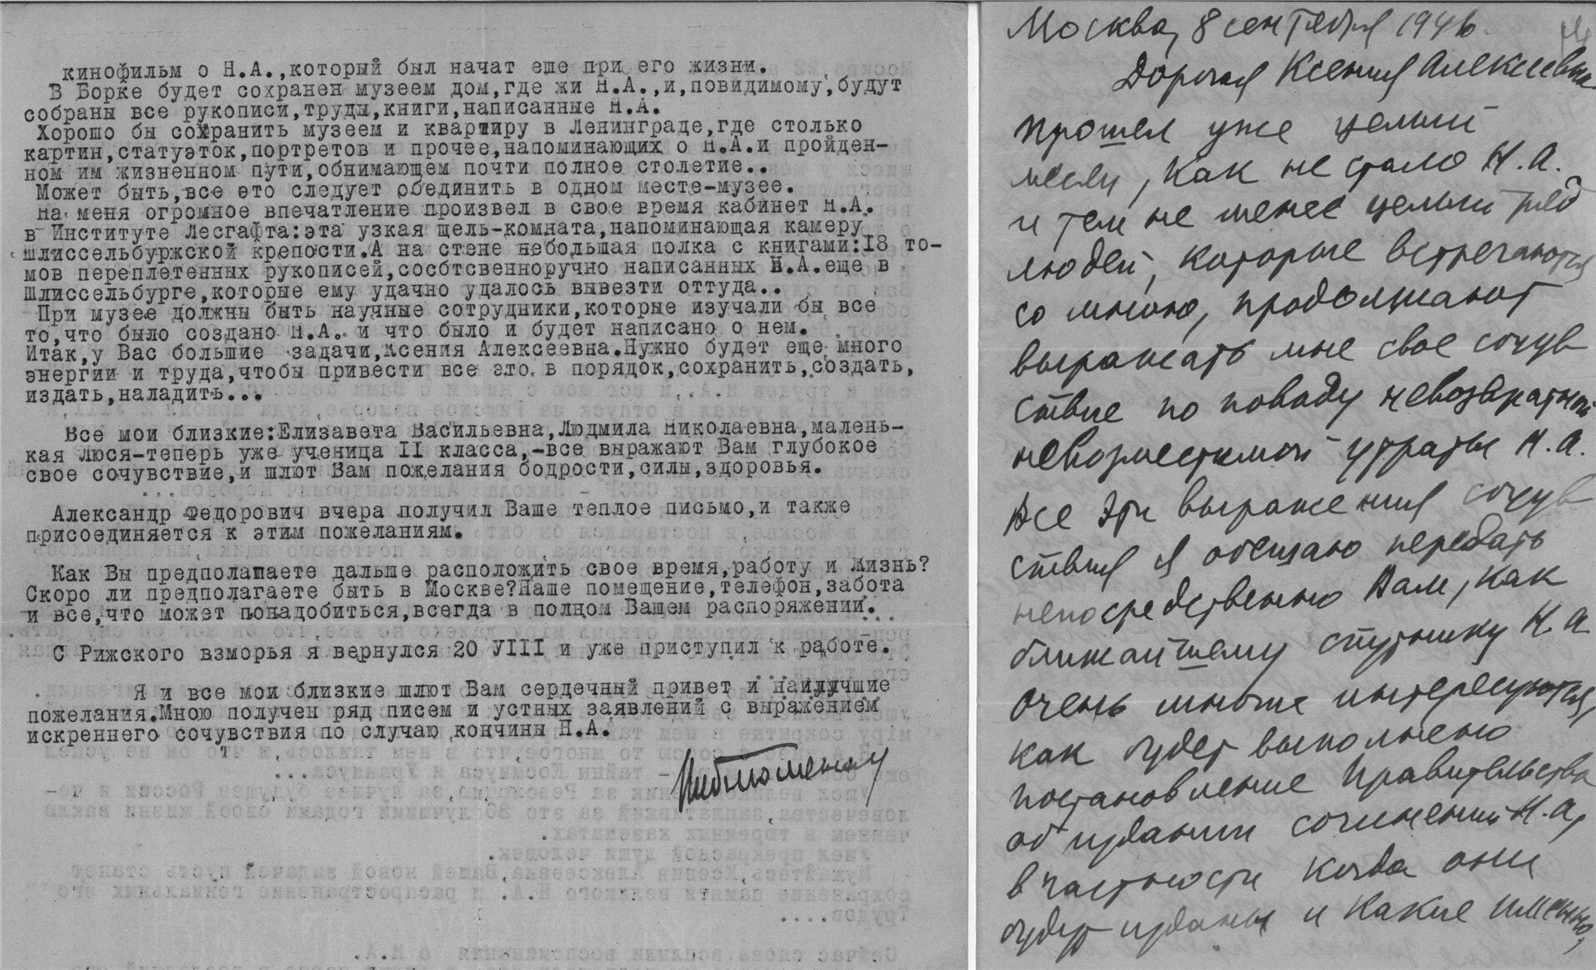 кинофильм о Н.А.,который был начат еше при его жизни.
В Борке будет сохранен музеем дом,где жи Н.А.,и,повидимому,будут
собраны все рукописи,труды,книги,написанные Н.А.
Хорошо бы сохранить музеем и квартиру в Ленинграде,где столько
картин,статуэток,портретов и прочее,напоминающих о Н.А.и пройден-
ном им жизненном пути,обнимающем почти полное столетие..
Может быть,все ето следует обединить в одном месте-музее.
На меня огромное впечатление произвел в свое время кабинет Н.А.
в Институте Лесгафта:эта узкая щель-комната,напоминающая камеру
шлиссельбуржской крепости.А на стене небольшая полка с книгами:18 то-
мов переплетенных рукописей,сосбтсвенноручно написанных Н.А.еще в
Шлиссельбурге,которые ему удачно удалось вывезти оттуда..
При музее должны быть научные сотрудники,которые изучали бы все
то,что было создано Н.А. и что было и будет написано о нем.
Итак,у Вас большие задачи,Ксения Алексеевна.Нужно будет еще много
энергии и труда,чтобы привести все это в порядок,сохранить,создать,
издать,наладить...
Все мои близкие:Елизавета Васильевна,Людмила Николаевна,малень-
кая Люся-теперь уже ученица II класса,-все выражают Вам глубокое
свое сочувствие,и шлют Вам пожелания бодрости,силы,здоровья.
Александр Федорович вчера получил Ваше теплое письмо,и также
присоединяется к этим пожеланиям.
Как Вы предполагаете дальше расположить свое время,работу и жизнь?
Скоро ли предполагаете быть в Москве?Наше помещение,телефон,забота
и все,что может понадобиться,всегда в полном Вашем распоряжении...
С Рижского взморья я вернулся 20 УIII и уже приступил к работе.
Я и все мои близкие шлют Вам сердечный привет и наилучшие
пожелания.Мною получен ряд писем и устных заявлений с выражением
искреннего сочувствия по случаю кончины Н.А.
Москва, 8 сентября 1946.
Дорогая Ксения Алексеевна
прошел уже целый
месяц, как не стало Н.А.
и тем не менее целый ряд
людей, которые встречаются
со мною, продолжают
выражать мне свое сочув
ствие по поводу невозвратной
невозместимой утраты Н.А.
Все эти выражения сочув
ствия я обещаю передать
непосредственно Вам, как
ближайшему спутнику Н.А
Очень многие интересуются,
как будет выполнено
постановление Правительства
об издании сочинений Н.А,
в частности когда они
будут изданы и какие именно,